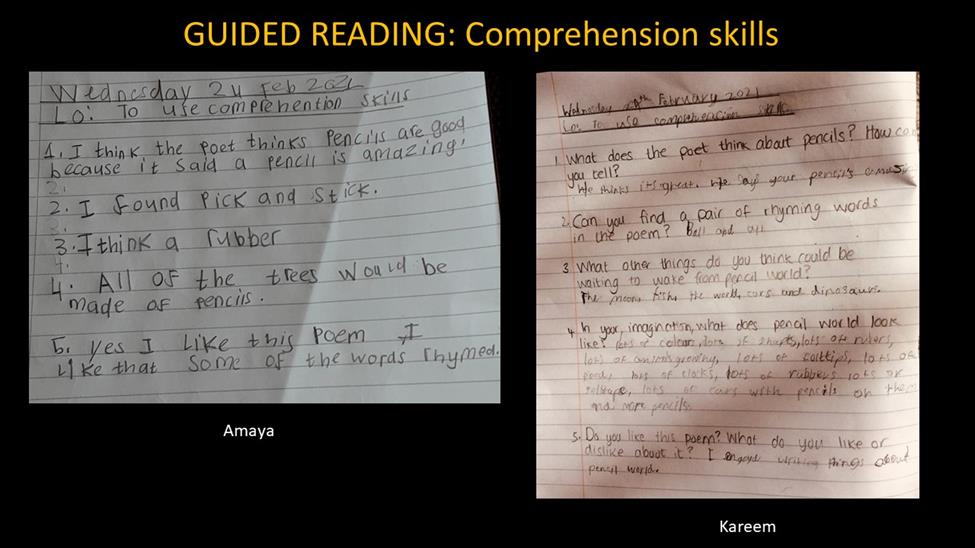 GUIDED READING: Comprehension skills
Wednesday 24 Feb 2021
Lo: To use comprehention skills
1. I think the poet thinks Pencils are good
because it said a pencil is amazing!
2.
2. I found Pick and Stick.
3.
3. I think a rubber
4.
4. All of the trees would be
made of pencils.
5. yes I Like this Poem I
like that some of the words rhymed.
Amaya
Wednesday 24th February 2021
Lo: To use comprehension skills
1. What does the poet think about pencils? How can
you tell?
He thinks it's great. He says your pencil's amazi
2. Can you find a pair of rhyming words
in the poem? Ball and all
3. What other things do you think could be
waiting to wake from pencil world?
The moon, fish, the world, cars and dinosaurs.
4. In your imagination, what does pencil world look
like? lots of colour, lots of sharps, lots of rulers,
lots of growing, lots of lots of
lots of clocks, lots of rubbers lots of
lots of cars with pencils on them
and more pencils.
5. Do you like this poem? What do you like or
dislike about it? I enjoyed writing things about
pencil world.
Kareem